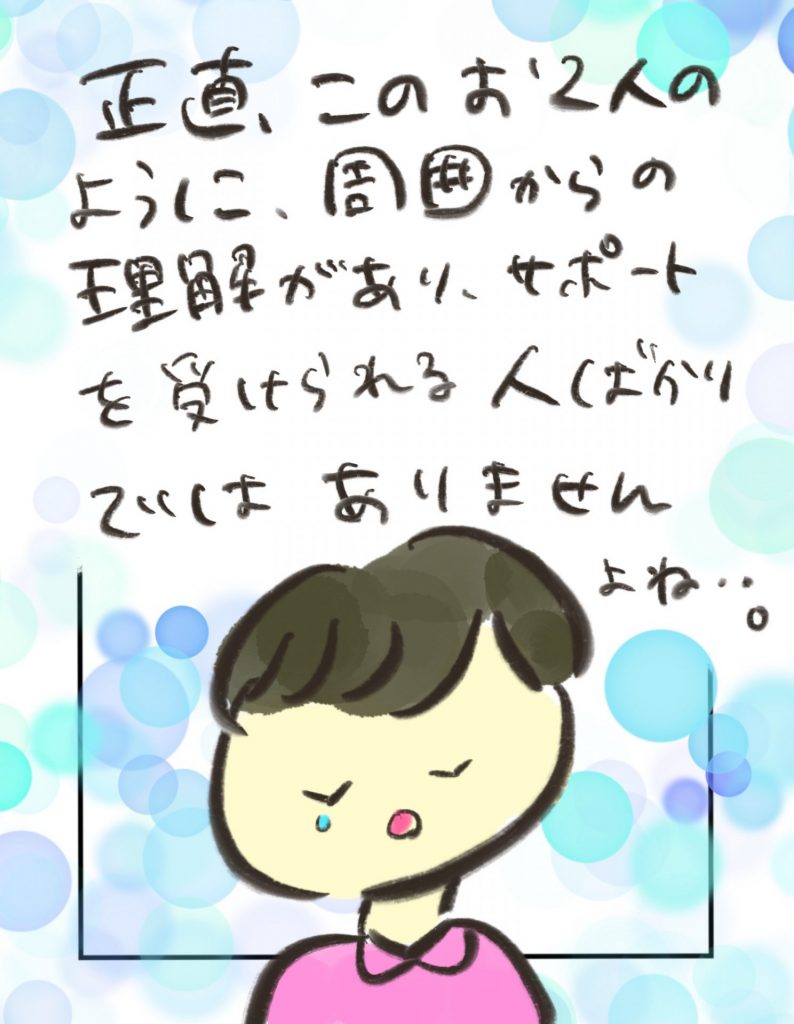 正直、このお2人の
ように、周囲からの
理解があり、サポート
を受けられる人ばかり
ではありません
よね‥。